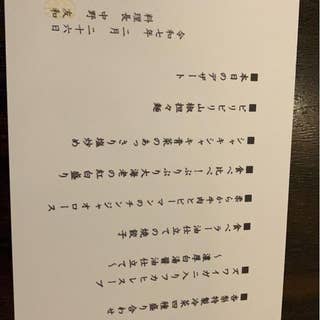 ■香梨特製冷菜四種盛り合わせ
■ズワイガニ入りフカヒレスープ
～濃厚白湯醤油仕立て～
■食べるラー油仕立ての焼餃子
■柔らか牛肉とピーマンのチンジャオロース
■食べ比べ 大海老の紅白盛り
■シャキシャキ青菜のあっさり塩炒め
■ピリピリ山椒担々麺
■本日のデザート
令和七年 二月二十六日
料理長 中野 友和